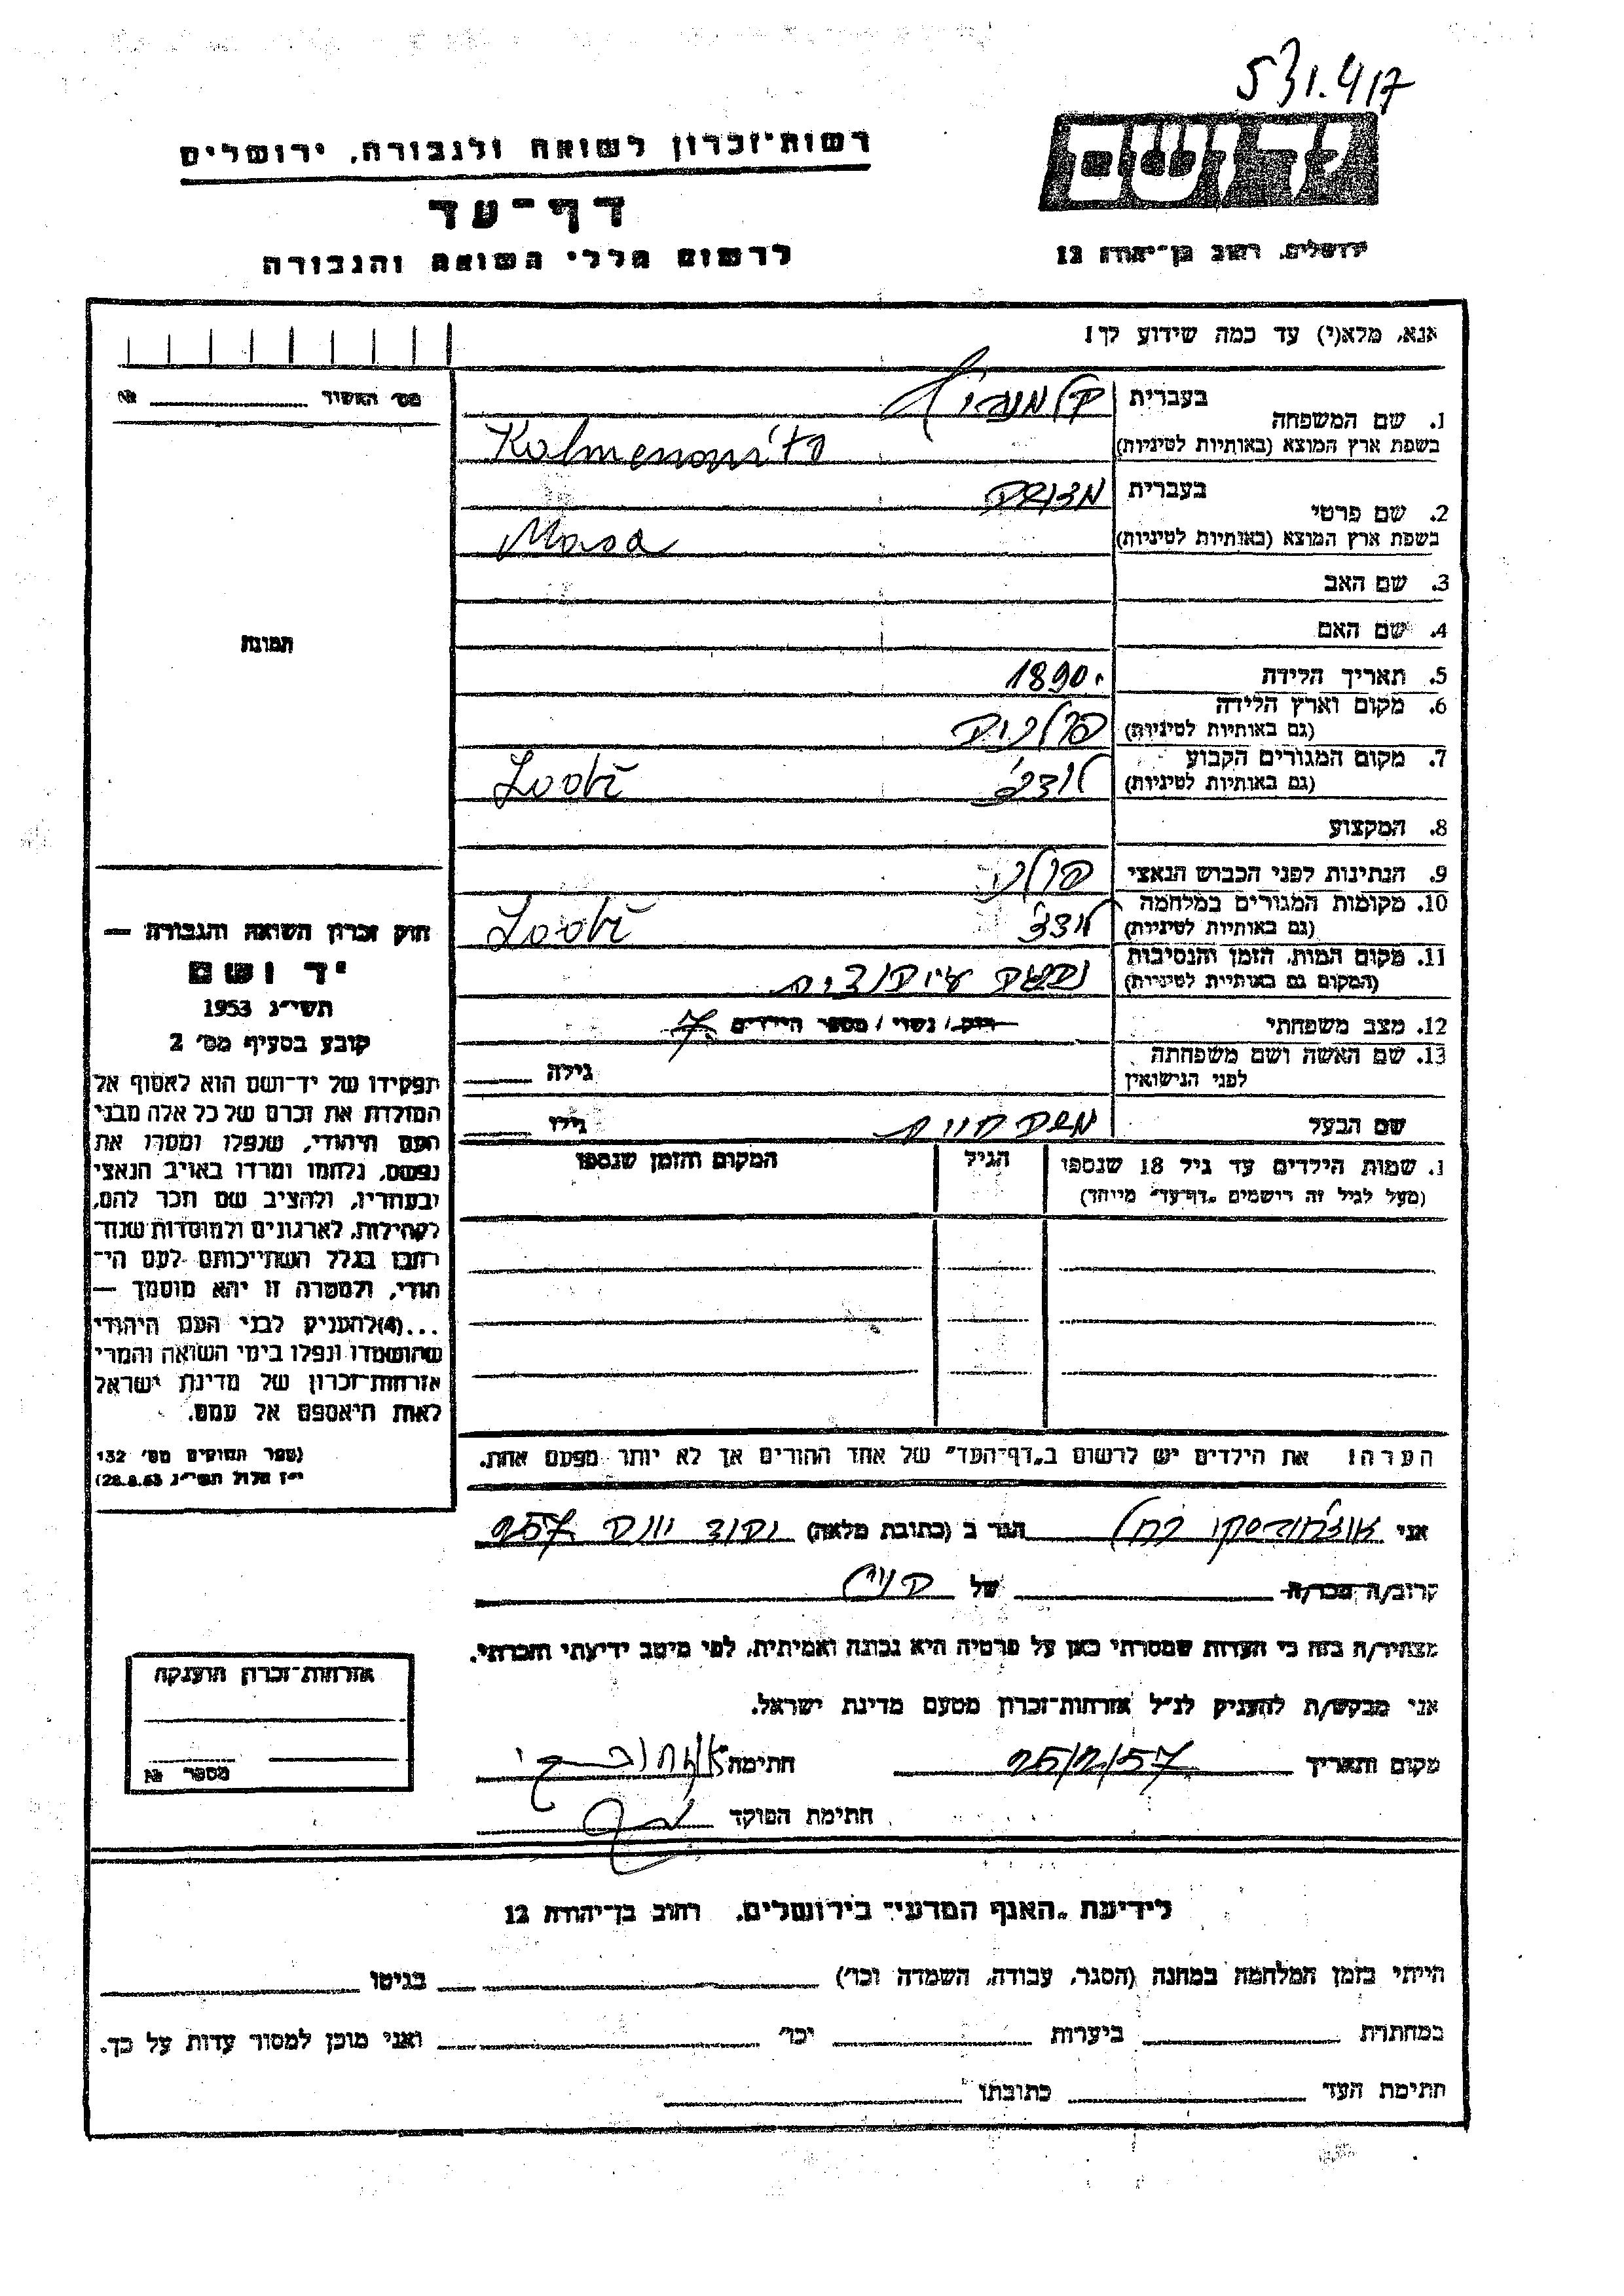 531.417
רשות־זכרון לשואה ולגבורה, ירושלים
דף־עד
לרשום חללי השואה והגבורה
ידושם
ירושלים, רחוב בן־יהודה 12
אנא, מלא(י) עד כמה שידוע לך!
מס' האשיר № ____
1. שם המשפחה בעברית
בשפת ארץ המוצא (באותיות לטיניות) Kalmenowits
2. שם פרטי בעברית
בשפת ארץ המוצא (באותיות לטיניות) Masa
3. שם האב
4. שם האם
תמונת
5. תאריך הלידה 1890.
6. מקום וארץ הלידה
(גם באותיות לטיניות) פולניה
7. מקום המגורים הקבוע
(גם באותיות לטיניות) לודז' Lodź
8. המקצוע
9. הנתינות לפני הכבוש הנאצי פולני
10. מקומות המגורים במלחמה
(גם באותיות לטיניות) לודז' Lodź
11. מקום המות, הזמן והנסיבות
(המקום גם באותיות לטיניות)
12. מצב משפחתי רווק / נשוי / מספר הילדים 7
13. שם האשה ושם משפחתה
לפני הנישואין גילה ____
שם הבעל גילו ____
1. שמות הילדים עד גיל 18 שנספו
(מעל לגיל זה רישמים „דף־עד" מייחד)
הגיל
המקום והזמן שנספו
חוק זכרון השואה והגבורה —
יד ושם
תשי״ג 1953
קובע בסעיף מס' 2
תפקידו של יד־ושם הוא לאסוף אל
המולדת את זכרם של כל אלה מבני
העם היהודי, שנפלו ומסרו את
נפשם, נלחמו ומרדו באויב הנאצי
ובעוזריו, ולהציב שם וזכר להם,
לקהילות, לארגונים ולמוסדות שנח־
רהבו בגלל השתייכותם לעם הי־
הודי, ולמטרה זו יהא מוסמך —
...(4)להעניק לבני העם היהודי
שהושמדו ונפלו בימי השואה והמרי
אזרחות־זכרון של מדינת ישראל
לאות היאספם אל עמם.
(ספר החוקים מס' 132
י״ז אלול תשי״ג 28.8.53)
הערה! את הילדים יש לרשום ב„דף־העד" של אחד ההורים אך לא יותר מפעם אחת.
אני רחל הגר ב (כתובת מלאה) 257
קרוב/ה מכר/ה ____ של
מצהיר/ה בזה כי העדות שמסרתי כאן על פרטיה היא נכונה ואמיתית, לפי מיטב ידיעתי והכרתי.
אני מבקש/ת להעניק לנ״ל אזרחות־זכרון מטעם מדינת ישראל.
מקום ותאריך 25/2/57 חתימה
חתימת הפוקד
אזרחות־זכרון הוענקה
מספר №
לידיעת „האגף המדעי" בירושלים, רחוב בן־יהודה 12
הייתי בזמן המלחמה במחנה (הסגר, עבודה, השמדה וכו') ____ בגיטו ____
במחתרת ____ ביערות ____ וכו' ____ ואני מוכן למסור עדות על כך.
חתימת העד ____ כתובתו ____